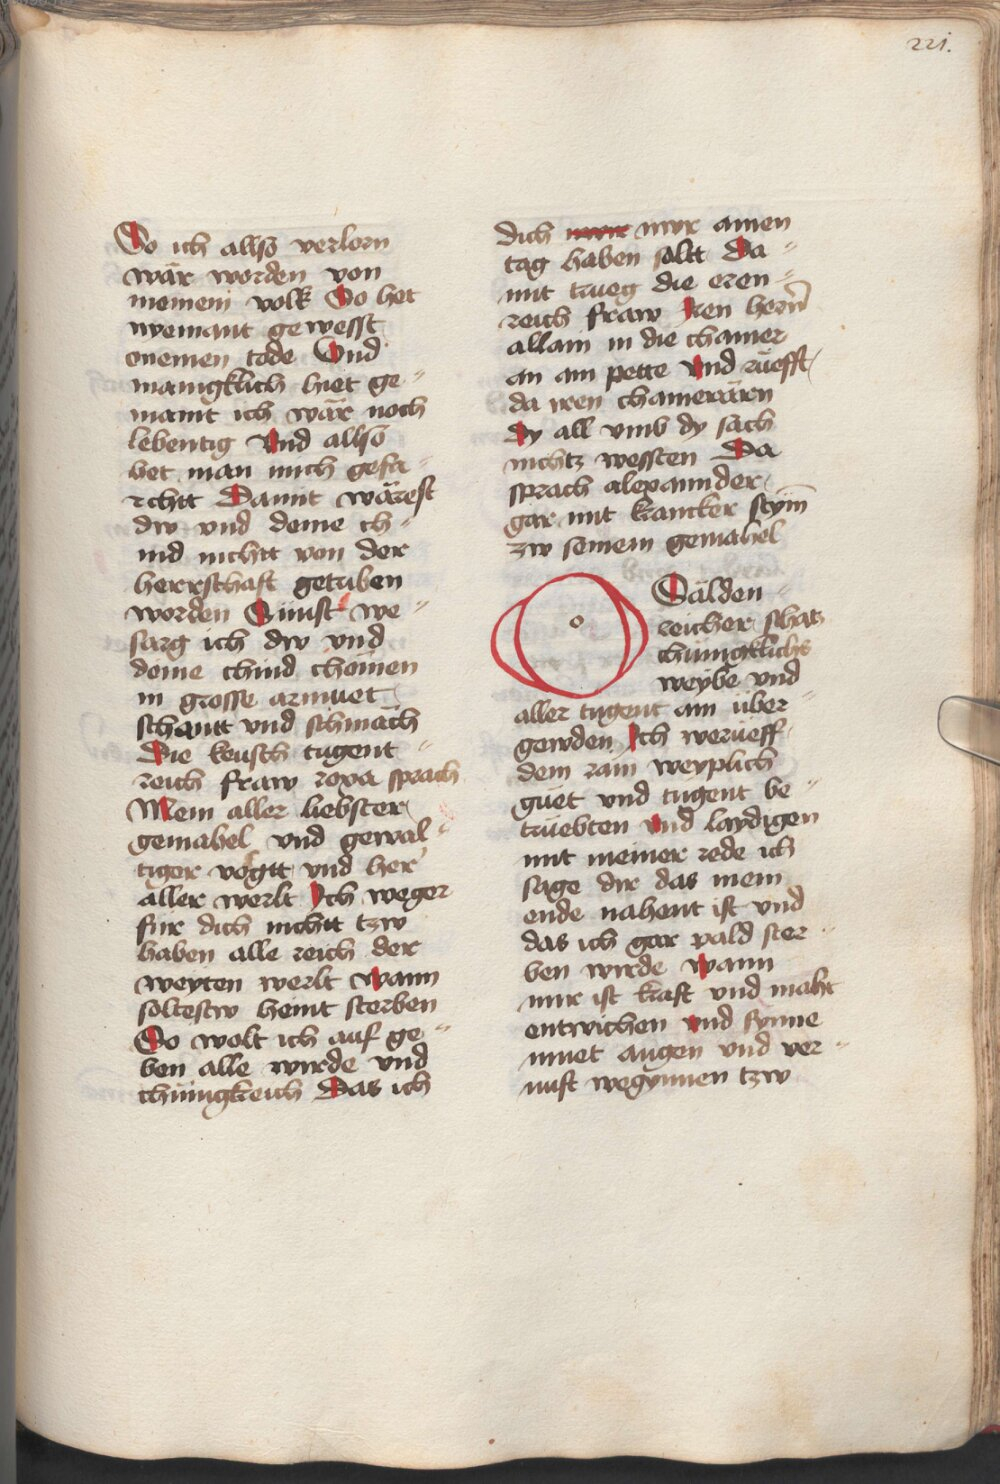 221.
Do ich allso verlorn
wär worden von
meinem volk Do het
nyemant gewesst
meinen tode Vnd
manigklich hiet ge=
maint ich wär noch
lebentig Vnd allso
het man mich gefü=
rchtt Damit wärest
dw vnd deine ch=
ind nichtt von der
herrschaft getriben
worden Sünst we=
sarg ich dw vnd
deine chind chömen
in grosse armuet
schantt vnd schmäch
Die keusch tugent=
reich fraw roxa sprach
Mein aller liebster
gemahel vnd gewal=
tiger vogtt vnd her
aller werlt Ich weger
für dich nichtt tzw
haben alle reich der
weyten werlt Wann
soltestw heint sterben
So wolt ich auf ge=
ben alle wirde vnd
chünigkreich Das ich
dich nwr amen
tag haben soltt Da=
mit trueg die eren=
reich fraw Iren herñ
allain in die chamer
an am pette Vnd rüefft
da iren chamerärn
Dy all vmb dy sach
nichtz wessten Da
sprach alexannder
gar mit krancker stym̄
zw seinem gemahel
O Sälden=
reicher schatz
chünigklichs
weybe vnd
aller tugent am über=
gewden Ich werüeff
dem rain weyplich
güet vnd tugent be=
trüebten Vnd laydigen
mit meiner rede ich
sage dir das mein
ende nahent ist vnd
das ich gar pald ster=
ben wirde Wann
mir ist kraft vnd maht
entwichen Vnd synne
muet augen vnd ver=
nuft wegynnen tzw